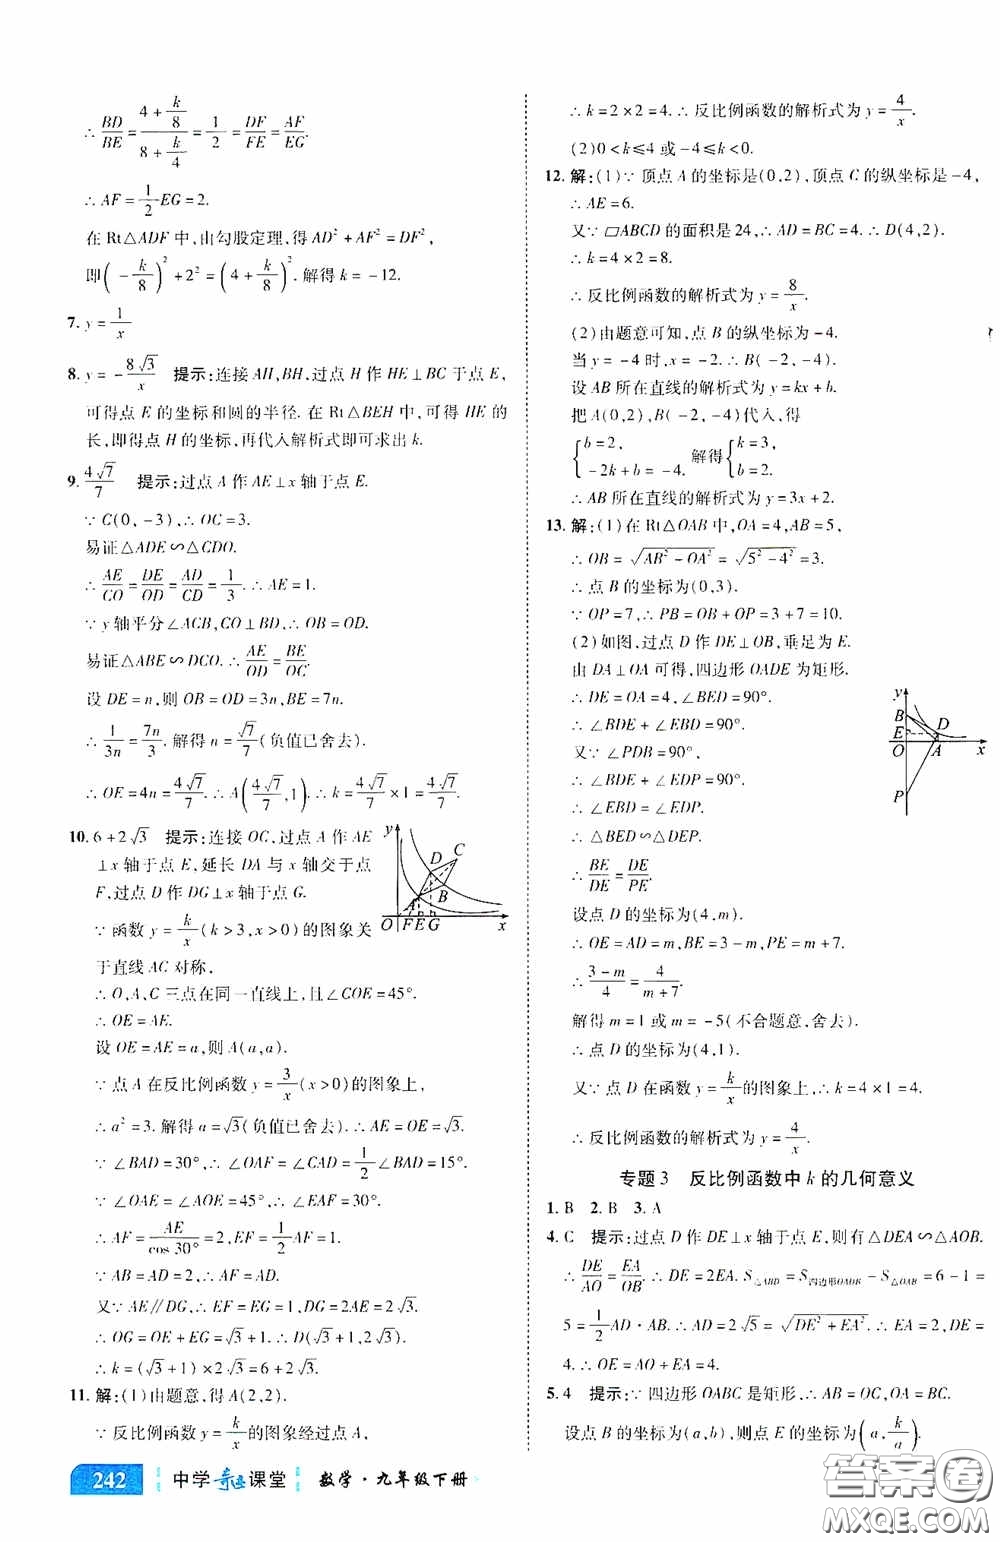 ∴ BD/BE = (4 + k/8)/(8 + k/4) = 1/2 = DF/FE = AF/EG.
∴ AF = 1/2 EG = 2.
在 Rt△ADF 中,由勾股定理,得 AD² + AF² = DF²,
即(-k/8)² + 2² = (4 + k/8)². 解得 k = -12.
7. y = 1/x
8. y = -8√3/x 提示:连接 AH,BH,过点 H 作 HE⊥BC 于点 E,
可得点 E 的坐标和圆的半径. 在 Rt△BEH 中,可得 HE 的
长,即得点 H 的坐标,再代入解析式即可求出 k.
9. 4√7/7 提示:过点 A 作 AE⊥x 轴于点 E.
∵ C(0,-3),∴ OC = 3.
易证△ADE∽△CDO.
∴ AE/CO = DE/OD = AD/CD = 1/3. ∴ AE = 1.
∵ y 轴平分∠ACB,CO⊥BD,∴ OB = OD.
易证△ABE∽DCO. ∴ AE/OD = BE/OC.
设 DE = n,则 OB = OD = 3n,BE = 7n.
∴ 1/3n = 7n/3. 解得 n = √7/7(负值已舍去).
∴ OE = 4n = 4√7/7. ∴ A(4√7/7,1). ∴ k = 4√7/7 × 1 = 4√7/7.
10. 6 + 2√3 提示:连接 OC,过点 A 作 AE
⊥x 轴于点 E,延长 DA 与 x 轴交于点
F,过点 D 作 DG⊥x 轴于点 G.
∵ 函数 y = k/x(k > 3,x > 0)的图象关
于直线 AC 对称,
y D C A B O F E G x
∴ O,A,C 三点在同一直线上,且∠COE = 45°.
∴ OE = AE.
设 OE = AE = a,则 A(a,a).
∵ 点 A 在反比例函数 y = 3/x(x > 0)的图象上,
∴ a² = 3. 解得 a = √3(负值已舍去). ∴ AE = OE = √3.
∵ ∠BAD = 30°,∴ ∠OAF = ∠CAD = 1/2∠BAD = 15°.
∵ ∠OAE = ∠AOE = 45°,∴ ∠EAF = 30°.
∴ AF = AE/cos 30° = 2,EF = 1.
∵ AB = AD = 2,∴ AF = AD.
又∵ AE∥DG,∴ EF = EG = 1,DG = 2AE = 2√3.
∴ OG = OE + EG = √3 + 1. ∴ D(√3 + 1,2√3).
∴ k = (√3 + 1) × 2√3 = 6 + 2√3.
11. 解:(1)由题意,得 A(2,2).
∵ 反比例函数 y = k/x 的图象经过点 A,
∴ k = 2 × 2 = 4. ∴ 反比例函数的解析式为 y = 4/x.
(2)0 < k ≤ 4 或 -4 ≤ k < 0.
12. 解:(1)∵ 顶点 A 的坐标是(0,2),顶点 C 的纵坐标是 -4,
∴ AE = 6.
又∵ ▱ABCD 的面积是 24,∴ AD = BC = 4. ∴ D(4,2).
∴ k = 4 × 2 = 8.
∴ 反比例函数的解析式为 y = 8/x.
(2)由题意可知,点 B 的纵坐标为 -4.
当 y = -4 时,x = -2. ∴ B(-2,-4).
设 AB 所在直线的解析式为 y = kx + b.
把 A(0,2),B(-2,-4)代入,得
{b = 2, -2k + b = -4. 解得{k = 3, b = 2.
∴ AB 所在直线的解析式为 y = 3x + 2.
13. 解:(1)在 Rt△OAB 中,OA = 4,AB = 5,
∴ OB = √(AB² - OA²) = √(5² - 4²) = 3.
∴ 点 B 的坐标为(0,3).
∵ OP = 7,∴ PB = OB + OP = 3 + 7 = 10.
(2)如图,过点 D 作 DE⊥OB,垂足为 E.
由 DA⊥OA 可得,四边形 OADE 为矩形.
∴ DE = OA = 4,∠BED = 90°.
∴ ∠BDE + ∠EBD = 90°.
又∵ ∠PDB = 90°,
∴ ∠BDE + ∠EDP = 90°.
∴ ∠EBD = ∠EDP.
∴ △BED∽△DEP.
∴ BE/DE = DE/PE.
y B D E O A x P
设点 D 的坐标为(4,m).
∴ OE = AD = m,BE = 3 - m,PE = m + 7.
∴ (3 - m)/4 = 4/(m + 7).
解得 m = 1 或 m = -5(不合题意,舍去).
∴ 点 D 的坐标为(4,1).
又∵ 点 D 在函数 y = k/x 的图象上,∴ k = 4 × 1 = 4.
∴ 反比例函数的解析式为 y = 4/x.
专题 3 反比例函数中 k 的几何意义
1. B 2. B 3. A
4. C 提示:过点 D 作 DE⊥x 轴于点 E,则有△DEA∽△AOB.
∴ DE/AO = EA/OB. ∴ DE = 2EA. S△ABD = S四边形OADB - S△OAB = 6 - 1 =
5 = 1/2 AD · AB. ∴ AD = 2√5 = √(DE² + EA²). ∴ EA = 2,DE =
4. ∴ OE = AO + EA = 4.
5. 4 提示:∵ 四边形 OABC 是矩形,∴ AB = OC,OA = BC.
设点 B 的坐标为(a,b),则点 E 的坐标为(a,k/a).
242 中学奇迹课堂 数学·九年级下册
答案卷
MXQE.COM